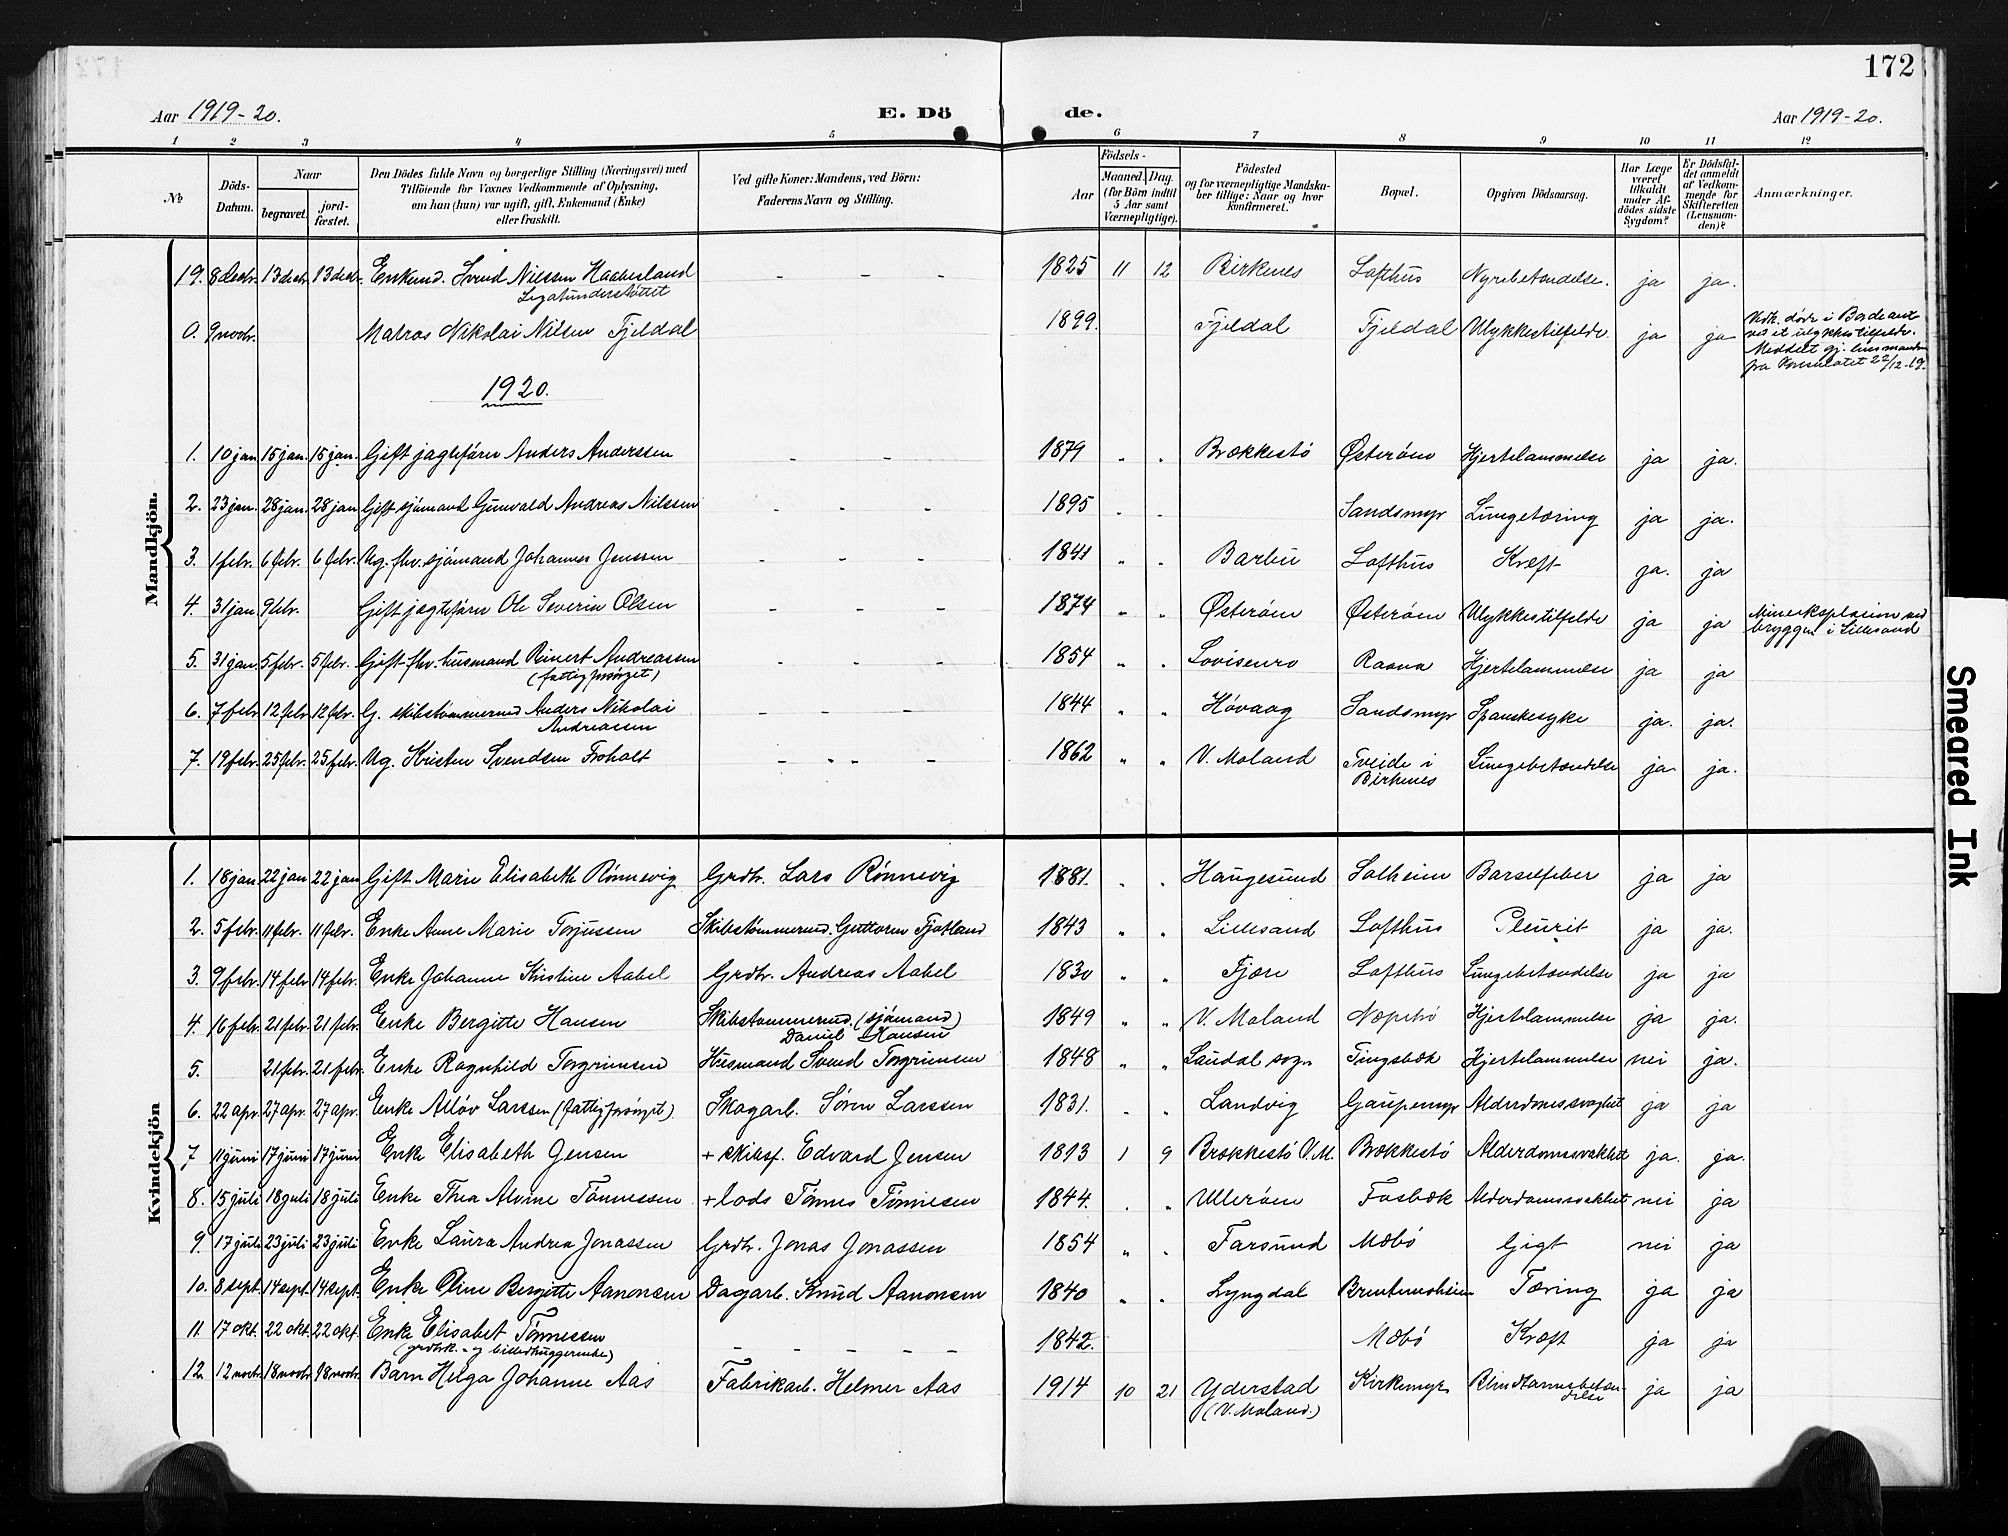 172
Aar 1919-20.
E. Dö de.
Aar 1919-20.
1 2 3 4 5 6 7 8 9 10 11 12
No
Döds-Datum.
Naar
begravet.
jord-fæstet.
Den Dödes fulde Navn og borgerlige Stilling (Næringsvei) med
Tilföiende for Voxnes Vedkommende af Oplysning,
om han (hun) var ugift, gift, Enkemand (Enke)
eller fraskilt.
Ved gifte Koner: Mandens, ved Börn:
Faderens Navn og Stilling.
Födsels-
Aar
Maaned. Dag.
(for Börn indtil
5 Aar samt
Værnepligtige).
Födested
og for værnepligtige Mandska-
ber tillige: Naar og hvor
konfirmeret.
Bopæl.
Opgiven Dödsaarsag.
Har Læge
været
tilkaldt
under Af-
dödes sidste
Sygdom?
Er Dödsfal-
det anmeldt
af Vedkom-
mende for
Skifteretten
(Lensman-
den)?
Anmærkninger.
Mandkjön.
19. 8 decbr. 13 decbr. 13 decbr. Enkemd. Svend Nilssen Haabesland - - - 1825 11 12 Birkenes Lofthus Nyrebetændelse. ja ja.
Legatunderstøttet
0. 9 novbr. Matros Nikolai Nilsen Tjeldal 1899. Tjeldal Tjeldal Ulykkestilfelde. ja ja
døde i Bordeaux
ved et ulykkestilfelde.
Meddelt gj. lensmanden
fra Konsulatet 22/12-19.
1920.
1. 10 jan 15 jan. 15 jan. Gift jagtefører Anders Anderssen - - - 1879 " " Brækkestö Østerøen Hjertelammelse ja ja.
2. 23 jan. 28 jan. 28 jan Gift sjømand Gunvald Andreas Nilssen - - - 1895 - - Sandsmyr Lungetæring ja ja.
3. 1 febr. 6 febr. 6 febr. Ug. fhv. sjømand Johannes Jenssen - - - 1841 " " Barbu Lofthus Kræft ja. ja
4. 31 jan. 9 febr. Gift jagtefører Ole Severin Olsen - - - 1874 " " Østerøen Østerøen Ulykkestilfelde ja ja Mineeksplosion ved
bryggen i Lillesand
5. 31 jan. 5 febr. 5 febr. Gift fhv. husmand Reinert Andreassen - - - 1854 " " Lovisenro Raana Hjertelammelse ja ja
(fattigforsörget)
6. 7 febr 12 febr 12 febr. G. skibstømmermd Anders Nikolai - - - 1844 " " Høvaag Sandsmyr Spanskesyke ja. ja.
Andreassen
7. 19 febr. 25 febr. 25 febr. Ug. Kristen Svendsen Froholt - - - 1862 " " V. Moland Tveide i Lungebetændelse ja ja.
Birkenes
Kvindekjön
1. 18 jan 22 jan 22 jan Gift Marie Elisabeth Rønnevig Grdbr. Lars Rønnevig 1881. " " Haugesund Solheim Barselfeber ja ja
2. 5 febr. 11 febr. 11 febr. Enke Anne Marie Torjussen Skibstømmermd. Guttorm Fjotland 1843 " " Lillesand Lofthus Pleurit ja ja.
3. 9 febr. 14 febr 14 febr. Enke Johanne Kristine Aabel Grdbr. Andreas Aabel 1830 " " Fjære Lofthus Lungebetændelse ja ja
4. 16 febr. 21 febr. 21 febr. Enke Bergitte Hansen Skibstømmermd. (sjømand) 1849 " " V. Moland Næpebö Hjertelammelse ja ja.
Daniel Hansen
5. 21 febr. 21 febr. Enke Ragnhild Torgrimsen Husmand Svend Torgrimsen 1848 " " Laudal sogn Tingsbæk Hjertelammelse nei ja.
6. 22 apr. 27 apr. 27 apr. Enke Alløv Larssen (fattigforsörget) Skogarb. Sören Larssen 1831. " " Landvig Gaupemyr Alderdomssvaghet ja ja
7 11 juni 17 juni 17 juni Enke Elisabeth Jensen + skibsf. Edvard Jensen 1813 1 9 Brækkestö V.M. Brækkestö Alderdomssvakhet ja. ja.
8. 15 juli 18 juli 18 juli Enke Thea Alvine Tönnessen + lods Tönnes Tönnesen 1844. " " Ulleröen Fosbæk Alderdomssvakhet nei ja
9. 17 juli 23 juli 23 juli Enke Laura Andrea Jonassen Grdbr. Jonas Jonassen 1854 " " Farsund Mæbö Gigt nei ja
10. 8 sept. 14 sept. 14 sept. Enke Oline Bergitte Aanonsen Dagarb. Knud Aanonsen 1840 " " Lyngdal Tæring ja ja
11 17 okt. 22 okt. 22 okt. Enke Elisabet Tönnessen - - - - - 1842. Mæbö Kræft ja ja
(grdbrk. - og billedhuggerenke)
12. 12 novbr. 18 novbr. 18 novbr. Barn Helga Johanne Aas Fabrikarb. Helmer Aas 1914 10 21 Yderstad Kirkemyr Blindtarmsbetæn- ja ja
(V. Moland.) delse
Smeared Ink